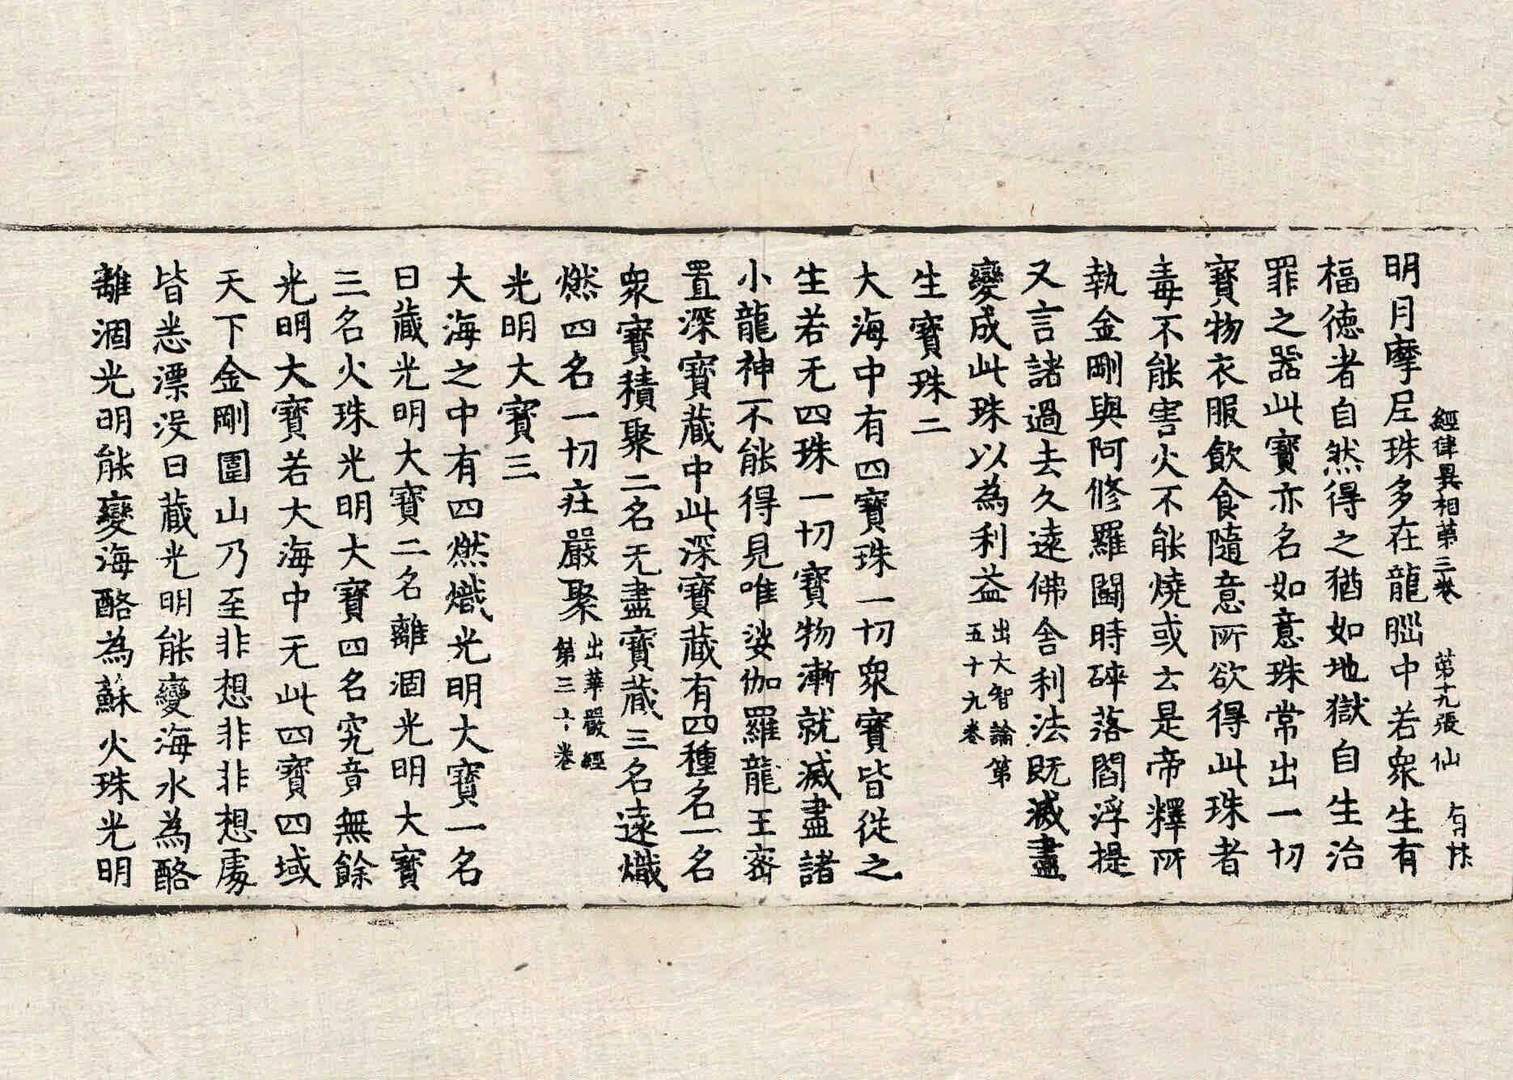 經律異相第三卷 第十九張 仙
明月摩尼珠多在龍𦛁中若衆生有
福德者自然得之猶如地獄自生治
罪之器此寶亦名如意珠常出一切
寶物衣服飲食隨意所欲得此珠者
毒不能害火不能燒或云是帝釋所
執金剛與阿修羅鬪時碎落閻浮提
又言諸過去久遠佛舍利法既滅盡
變成此珠以為利益出大智論第
五十九卷
生寶珠二
大海中有四寶珠一切衆寶皆從之
生若无四珠一切寶物漸就滅盡諸
小龍神不能得見唯娑伽羅龍王密
置深寶藏中此深寶藏有四種名一名
衆寶積聚二名无盡寶藏三名遠熾
燃四名一切庄嚴聚出華嚴經
第三十卷
光明大寶三
大海之中有四燃熾光明大寶一名
日藏光明大寶二名離涸光明大寶
三名火珠光明大寶四名究竟無餘
光明大寶若大海中无此四寶四域
天下金剛圍山乃至非想非非想處
皆悉漂沒日藏光明能變海水為酪
離涸光明能變海酪為蘇火珠光明